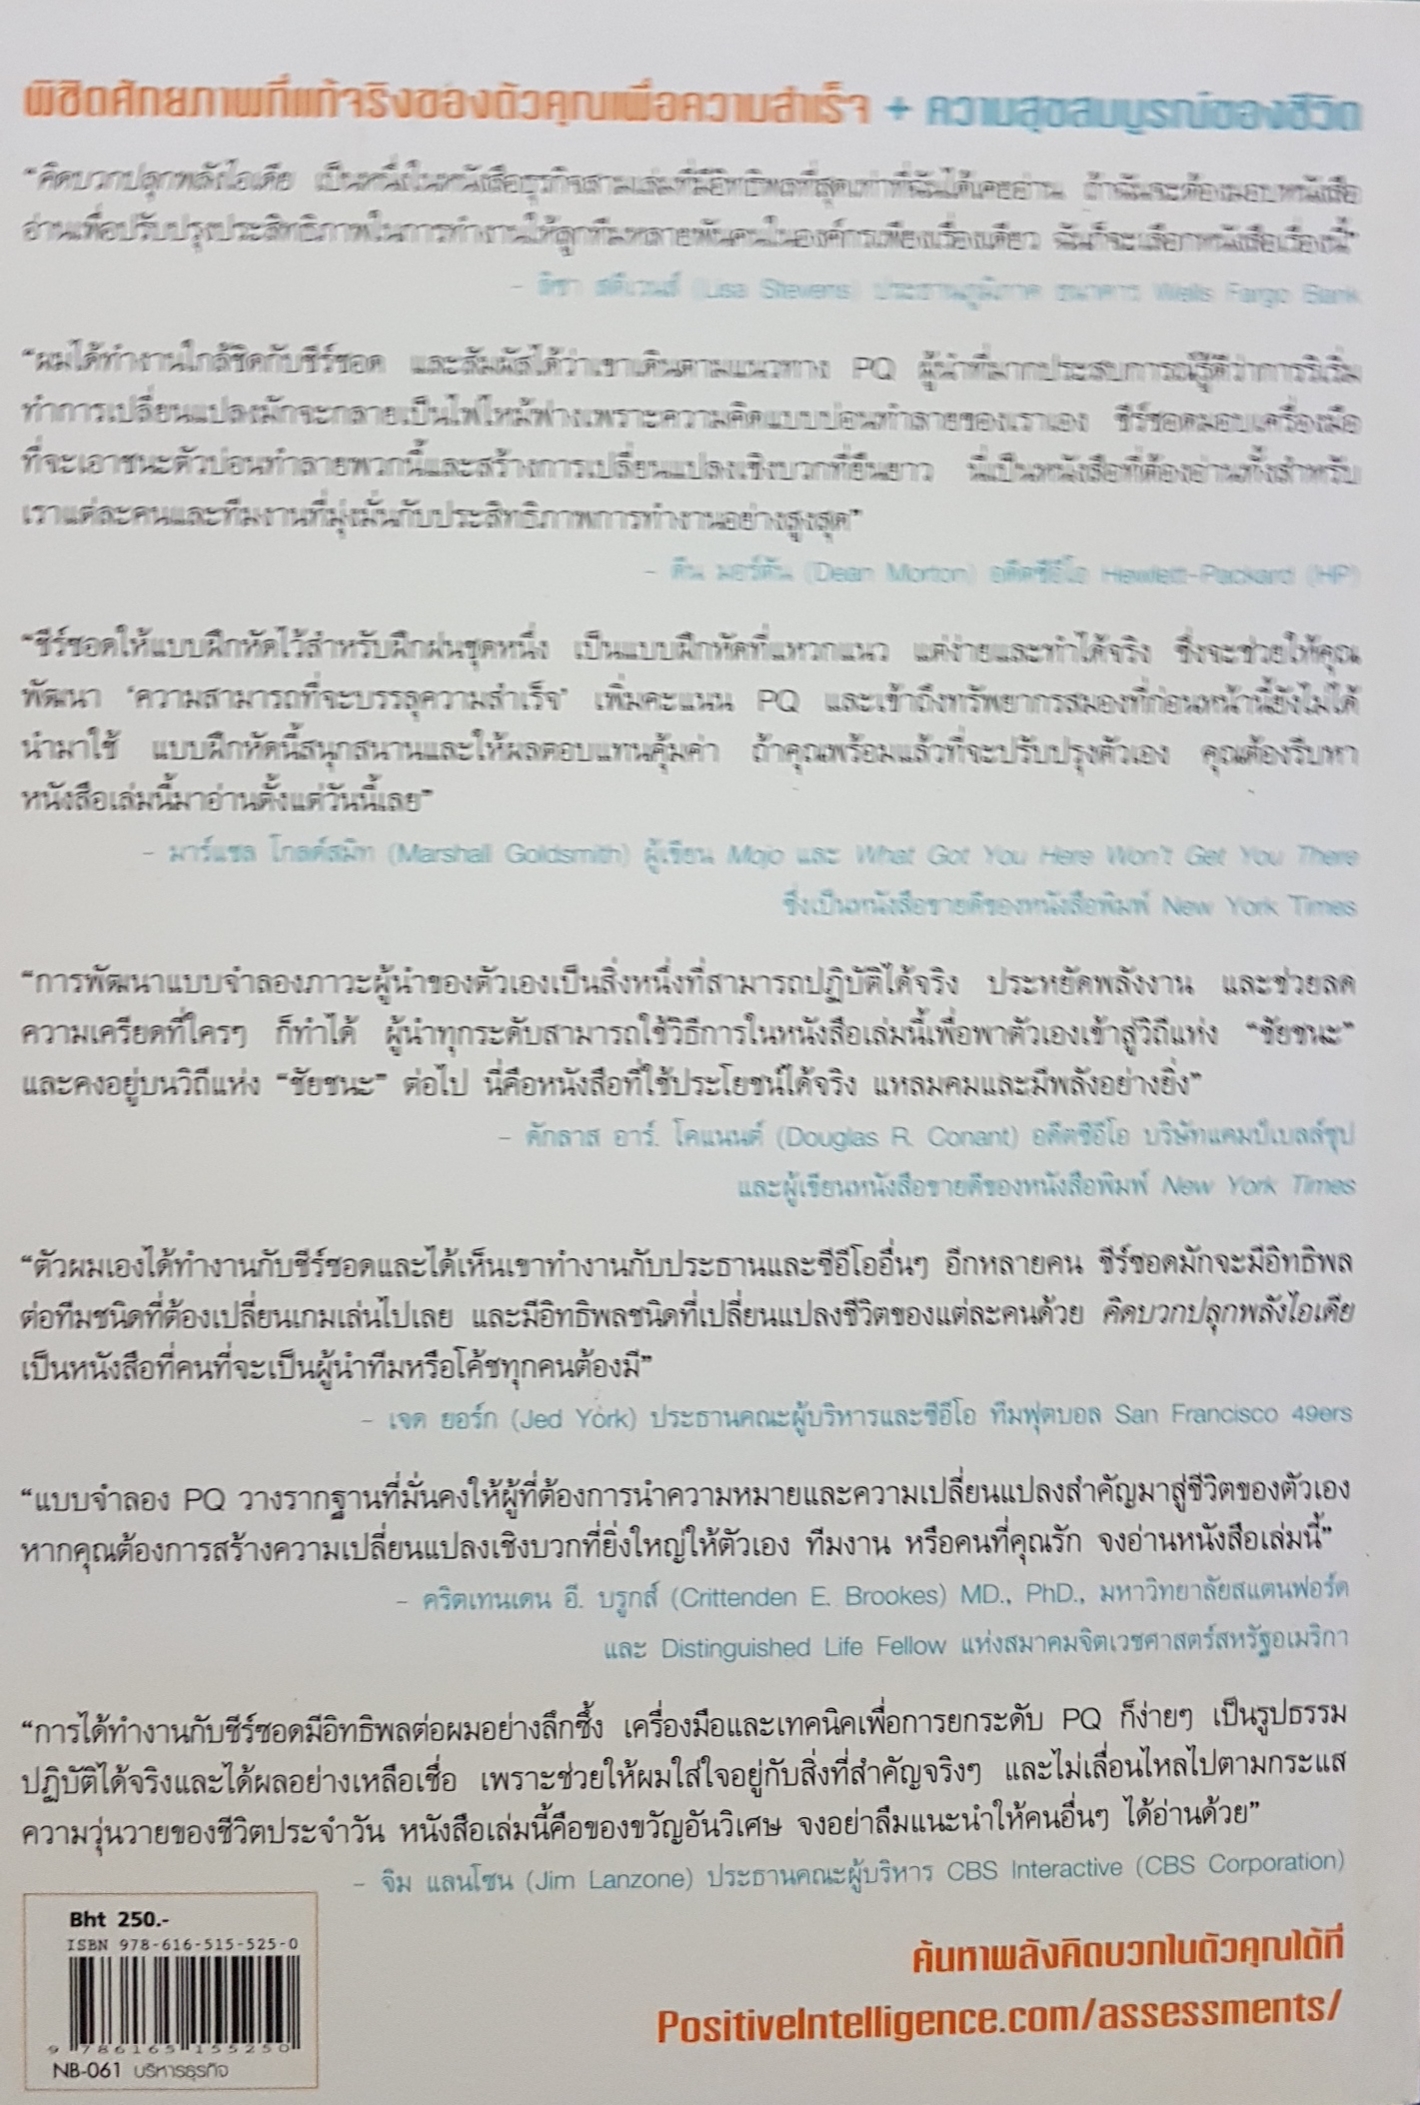 พิชิตศักยภาพที่แท้จริงของตัวคุณเพื่อความสำเร็จ + ความสุขสมบูรณ์ของชีวิต
“คิดบวกปลุกพลังไอเดีย เป็นหนึ่งในหนังสือธุรกิจสามเล่มที่มีอิทธิพลที่สุดเท่าที่ฉันได้เคยอ่าน ถ้าฉันจะต้องมอบหนังสือ
อ่านเพื่อปรับปรุงประสิทธิภาพในการทำงานให้ลูกทีมหลายพันคนในองค์กรเพียงเรื่องเดียว ฉันก็จะเลือกหนังสือเรื่องนี้”
– ลิซา สตีเวนส์ (Lisa Stevens) ประธานภูมิภาค ธนาคาร Wells Fargo Bank
“ผมได้ทำงานใกล้ชิดกับชีร์ซอด และสัมผัสได้ว่าเขาเดินตามแนวทาง PQ ผู้นำที่มากประสบการณ์รู้ดีว่าการริเริ่ม
ทำการเปลี่ยนแปลงมักจะกลายเป็นไฟไหม้ฟางเพราะความคิดแบบบ่อนทำลายของเราเอง ชีร์ซอดมอบเครื่องมือ
ที่จะเอาชนะตัวบ่อนทำลายพวกนี้และสร้างการเปลี่ยนแปลงเชิงบวกที่ยืนยาว นี่เป็นหนังสือที่ต้องอ่านทั้งสำหรับ
เราแต่ละคนและทีมงานที่มุ่งมั่นกับประสิทธิภาพการทำงานอย่างสูงสุด”
– ดีน มอร์ตัน (Dean Morton) อดีตซีอีโอ Hewlett-Packard (HP)
“ชีร์ซอดให้แบบฝึกหัดไว้สำหรับฝึกฝนชุดหนึ่ง เป็นแบบฝึกหัดที่แหวกแนว แต่ง่ายและทำได้จริง ซึ่งจะช่วยให้คุณ
พัฒนา ‘ความสามารถที่จะบรรลุความสำเร็จ’ เพิ่มคะแนน PQ และเข้าถึงทรัพยากรสมองที่ก่อนหน้านี้ยังไม่ได้
นำมาใช้ แบบฝึกหัดนี้สนุกสนานและให้ผลตอบแทนคุ้มค่า ถ้าคุณพร้อมแล้วที่จะปรับปรุงตัวเอง คุณต้องรีบหา
หนังสือเล่มนี้มาอ่านตั้งแต่วันนี้เลย”
– มาร์แชล โกลด์สมิท (Marshall Goldsmith) ผู้เขียน Mojo และ What Got You Here Won't Get You There
ซึ่งเป็นหนังสือขายดีของหนังสือพิมพ์ New York Times
“การพัฒนาแบบจำลองภาวะผู้นำของตัวเองเป็นสิ่งหนึ่งที่สามารถปฏิบัติได้จริง ประหยัดพลังงาน และช่วยลด
ความเครียดที่ใครๆ ก็ทำได้ ผู้นำทุกระดับสามารถใช้วิธีการในหนังสือเล่มนี้เพื่อพาตัวเองเข้าสู่วิถีแห่ง “ชัยชนะ”
และคงอยู่บนวิถีแห่ง “ชัยชนะ” ต่อไป นี่คือหนังสือที่ใช้ประโยชน์ได้จริง แหลมคมและมีพลังอย่างยิ่ง”
– ดักลาส อาร์. โคแนนต์ (Douglas R. Conant) อดีตซีอีโอ บริษัทแคมป์เบลล์ซุป
และผู้เขียนหนังสือขายดีของหนังสือพิมพ์ New York Times
“ตัวผมเองได้ทำงานกับชีร์ซอดและได้เห็นเขาทำงานกับประธานและซีอีโออื่นๆ อีกหลายคน ชีร์ซอดมักจะมีอิทธิพล
ต่อทีมชนิดที่ต้องเปลี่ยนเกมเล่นไปเลย และมีอิทธิพลชนิดที่เปลี่ยนแปลงชีวิตของแต่ละคนด้วย คิดบวกปลุกพลังไอเดีย
เป็นหนังสือที่คนที่จะเป็นผู้นำทีมหรือโค้ชทุกคนต้องมี”
– เจด ยอร์ก (Jed York) ประธานคณะผู้บริหารและซีอีโอ ทีมฟุตบอล San Francisco 49ers
“แบบจำลอง PQ วางรากฐานที่มั่นคงให้ผู้ที่ต้องการนำความหมายและความเปลี่ยนแปลงสำคัญมาสู่ชีวิตของตัวเอง
หากคุณต้องการสร้างความเปลี่ยนแปลงเชิงบวกที่ยิ่งใหญ่ให้ตัวเอง ทีมงาน หรือคนที่คุณรัก จงอ่านหนังสือเล่มนี้”
– คริตเทนเดน อี. บรูกส์ (Crittenden E. Brookes) MD., PhD., มหาวิทยาลัยสแตนฟอร์ด
และ Distinguished Life Fellow แห่งสมาคมจิตเวชศาสตร์สหรัฐอเมริกา
“การได้ทำงานกับชีร์ซอดมีอิทธิพลต่อผมอย่างลึกซึ้ง เครื่องมือและเทคนิคเพื่อการยกระดับ PQ ก็ง่ายๆ เป็นรูปธรรม
ปฏิบัติได้จริงและได้ผลอย่างเหลือเชื่อ เพราะช่วยให้ผมใส่ใจอยู่กับสิ่งที่สำคัญจริงๆ และไม่เลื่อนไหลไปตามกระแส
ความวุ่นวายของชีวิตประจำวัน หนังสือเล่มนี้คือของขวัญอันวิเศษ จงอย่าลืมแนะนำให้คนอื่นๆ ได้อ่านด้วย”
– จิม แลนโซน (Jim Lanzone) ประธานคณะผู้บริหาร CBS Interactive (CBS Corporation)
Bht 250.-
ISBN 978-616-515-525-0
9 786165 155250
NB-061 บริหารธุรกิจ
ค้นหาพลังคิดบวกในตัวคุณได้ที่
PositiveIntelligence.com/assessments/